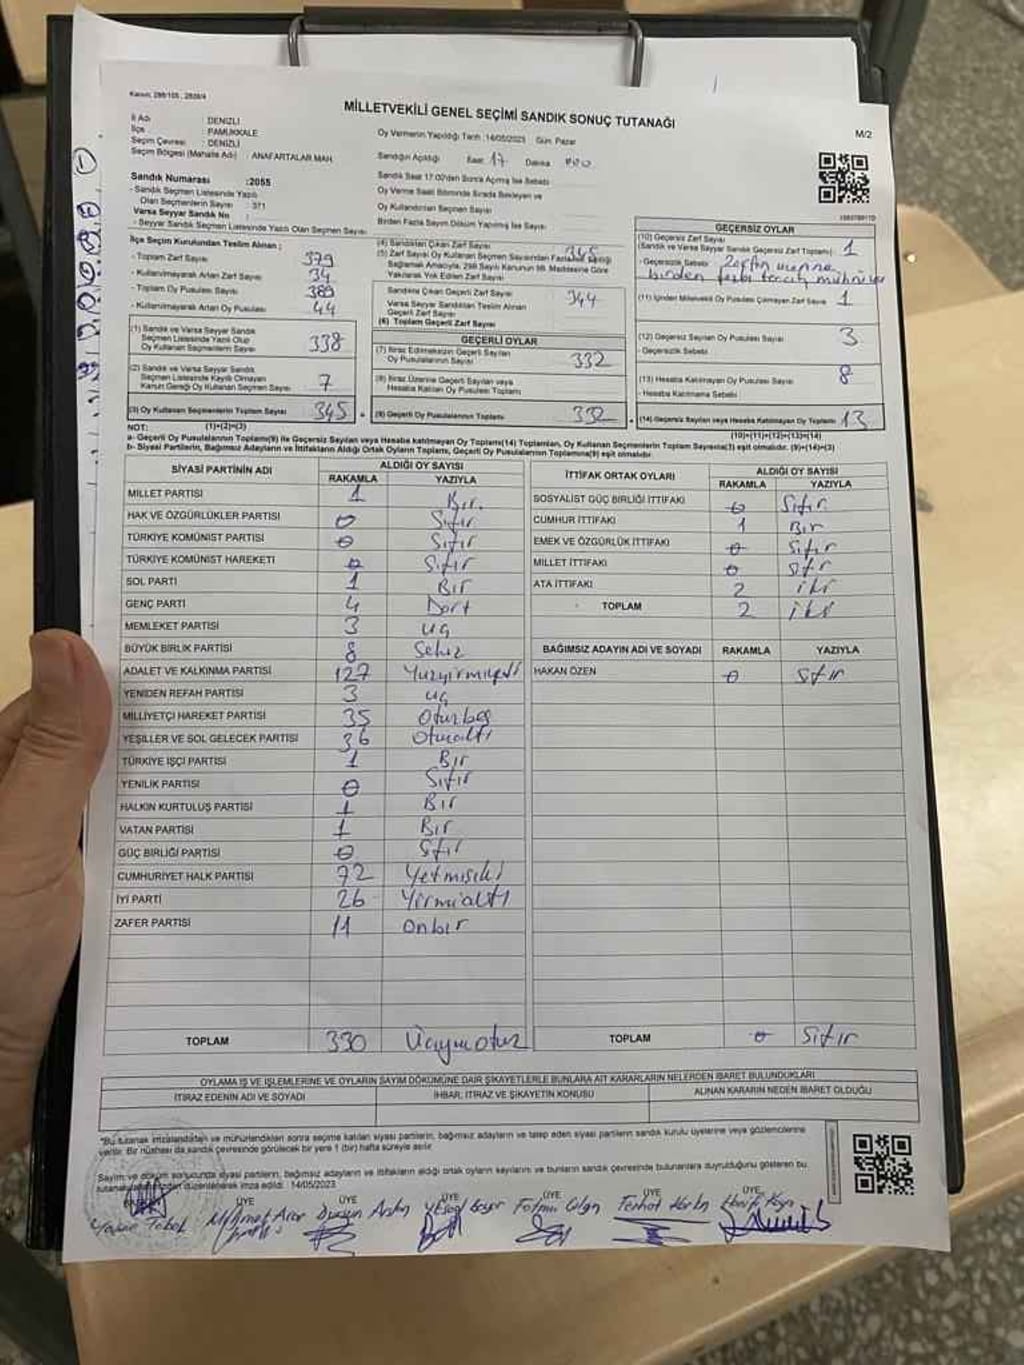 Kanun: 298/105, 2839/4
MİLLETVEKİLİ GENEL SEÇİMİ SANDIK SONUÇ TUTANAĞI
M/2
İl Adı : DENİZLİ
İlçe : PAMUKKALE
Seçim Çevresi : DENİZLİ
Seçim Bölgesi (Mahalle Adı) : ANAFARTALAR MAH.
Oy Vermenin Yapıldığı Tarih :14/05/2023 Gün: Pazar
Sandığın Açıldığı Saat: 17 Dakika
Sandık Saat 17:00'den Sonra Açılmış İse Sebebi
Oy Verme Saati Bitiminde Sırada Bekleyen ve
Oy Kullandırılan Seçmen Sayısı
Birden Fazla Sayım Döküm Yapılmış İse Sayısı
Sandık Numarası :2055
- Sandık Seçmen Listesinde Yazılı
Olan Seçmenlerin Sayısı : 371
Varsa Seyyar Sandık No :
- Seyyar Sandık Seçmen Listesinde Yazılı Olan Seçmen Sayısı
İlçe Seçim Kurulundan Teslim Alınan ;
- Toplam Zarf Sayısı 379
- Kullanılmayarak Artan Zarf Sayısı 34
- Toplam Oy Pusulası Sayısı 389
- Kullanılmayarak Artan Oy Pusulası 44
(1) Sandık ve Varsa Seyyar Sandık
Seçmen Listesinde Yazılı Olup
Oy Kullanan Seçmenlerin Sayısı 338
(2) Sandık ve Varsa Seyyar Sandık
Seçmen Listesinde Kayıtlı Olmayan
Kanun Gereği Oy Kullanan Seçmen Sayısı 7
(3) Oy Kullanan Seçmenlerin Toplam Sayısı 345
(1)+(2)=(3)
(4) Sandıktan Çıkan Zarf Sayısı 345
(5) Zarf Sayısı Oy Kullanan Seçmen Sayısından Fazla İse Eşitliği
Sağlamak Amacıyla, 298 Sayılı Kanunun 98. Maddesine Göre
Yakılarak Yok Edilen Zarf Sayısı
Sandıkta Çıkan Geçerli Zarf Sayısı 344
Varsa Seyyar Sandıktan Teslim Alınan
Geçerli Zarf Sayısı
(6) Toplam Geçerli Zarf Sayısı
GEÇERLİ OYLAR
(7) İtiraz Edilmeksizin Geçerli Sayılan
Oy Pusulalarının Sayısı 332
(8) İtiraz Üzerine Geçerli Sayılan veya
Hesaba Katılan Oy Pusulaları Toplamı
(9) Geçerli Oy Pusulalarının Toplamı 332
GEÇERSİZ OYLAR
(10) Geçersiz Zarf Sayısı
(Sandık ve Varsa Seyyar Sandık Geçersiz Zarf Toplamı) 1
- Geçersizlik Sebebi Zarfın üzerine
birden fazla tercih mührü
(11) İçinden Milletvekili Oy Pusulası Çıkmayan Zarf Sayısı 1
(12) Geçersiz Sayılan Oy Pusulası Sayısı 3
- Geçersizlik Sebebi
(13) Hesaba Katılmayan Oy Pusulası Sayısı 8
- Hesaba Katılmama Sebebi
(14) Geçersiz Sayılan veya Hesaba Katılmayan Oy Toplamı 13
(10)+(11)+(12)+(13)=(14)
NOT:
a- Geçerli Oy Pusulalarının Toplamı(9) ile Geçersiz Sayılan veya Hesaba katılmayan Oy Toplamı(14) Toplamları, Oy Kullanan Seçmenlerin Toplam Sayısına(3) eşit olmalıdır. (9)+(14)=(3)
b- Siyasi Partilerin, Bağımsız Adayların ve İttifakların Aldığı Ortak Oyların Toplamı, Geçerli Oy Pusulalarının Toplamına(9) eşit olmalıdır.
SİYASİ PARTİNİN ADI ALDIĞI OY SAYISI
RAKAMLA YAZIYLA
MİLLET PARTİSİ 1 Bir.
HAK VE ÖZGÜRLÜKLER PARTİSİ 0 Sıfır
TÜRKİYE KOMÜNİST PARTİSİ 0 Sıfır
TÜRKİYE KOMÜNİST HAREKETİ 0 Sıfır
SOL PARTİ 1 Bir
GENÇ PARTİ 4 Dört
MEMLEKET PARTİSİ 3 üç
BÜYÜK BİRLİK PARTİSİ 8 Sekiz
ADALET VE KALKINMA PARTİSİ 127 Yüzyirmiyedi
YENİDEN REFAH PARTİSİ 3 üç
MİLLİYETÇİ HAREKET PARTİSİ 35 Oturbeş
YEŞİLLER VE SOL GELECEK PARTİSİ 36 Otuzaltı
TÜRKİYE İŞÇİ PARTİSİ 1 Bir
YENİLİK PARTİSİ 0 Sıfır
HALKIN KURTULUŞ PARTİSİ 1 Bir
VATAN PARTİSİ 1 Bir
GÜÇ BİRLİĞİ PARTİSİ 0 Sıfır
CUMHURİYET HALK PARTİSİ 72 Yetmişiki
İYİ PARTİ 26 Yirmialtı
ZAFER PARTİSİ 11 onbir
TOPLAM 330 Üçyüzotuz
İTTİFAK ORTAK OYLARI ALDIĞI OY SAYISI
RAKAMLA YAZIYLA
SOSYALİST GÜÇ BİRLİĞİ İTTİFAKI 0 Sıfır
CUMHUR İTTİFAKI 1 Bir
EMEK VE ÖZGÜRLÜK İTTİFAKI 0 Sıfır
MİLLET İTTİFAKI 0 Sıfır
ATA İTTİFAKI 2 iki
TOPLAM 2 iki
BAĞIMSIZ ADAYIN ADI VE SOYADI RAKAMLA YAZIYLA
HAKAN ÖZEN 0 Sıfır
TOPLAM 0 Sıfır
OYLAMA İŞ VE İŞLEMLERİNE VE OYLARIN SAYIM DÖKÜMÜNE DAİR ŞİKAYETLERLE BUNLARA AİT KARARLARIN NELERDEN İBARET BULUNDUKLARI
İTİRAZ EDENİN ADI VE SOYADI İHBAR, İTİRAZ VE ŞİKAYETİN KONUSU ALINAN KARARIN NEDEN İBARET OLDUĞU
"Bu tutanak imzalandıktan ve mühürlendikten sonra seçime katılan siyasi partilerin, bağımsız adayların ve talep eden siyasi partilerin sandık kurulu üyelerine veya gözlemcilerine
verilir. Bir nüshası da sandık çevresinde görülecek bir yere 1 (bir) hafta süreyle asılır.
Sayım ve döküm sonucunda siyasi partilerin, bağımsız adayların ve ittifakların aldığı ortak oyların sayılarını ve bunların sandık çevresinde bulunanlara duyrulduğunu gösteren bu
tutanak düzenlenerek imza edildi. 14/05/2023
ÜYE ÜYE ÜYE ÜYE ÜYE ÜYE